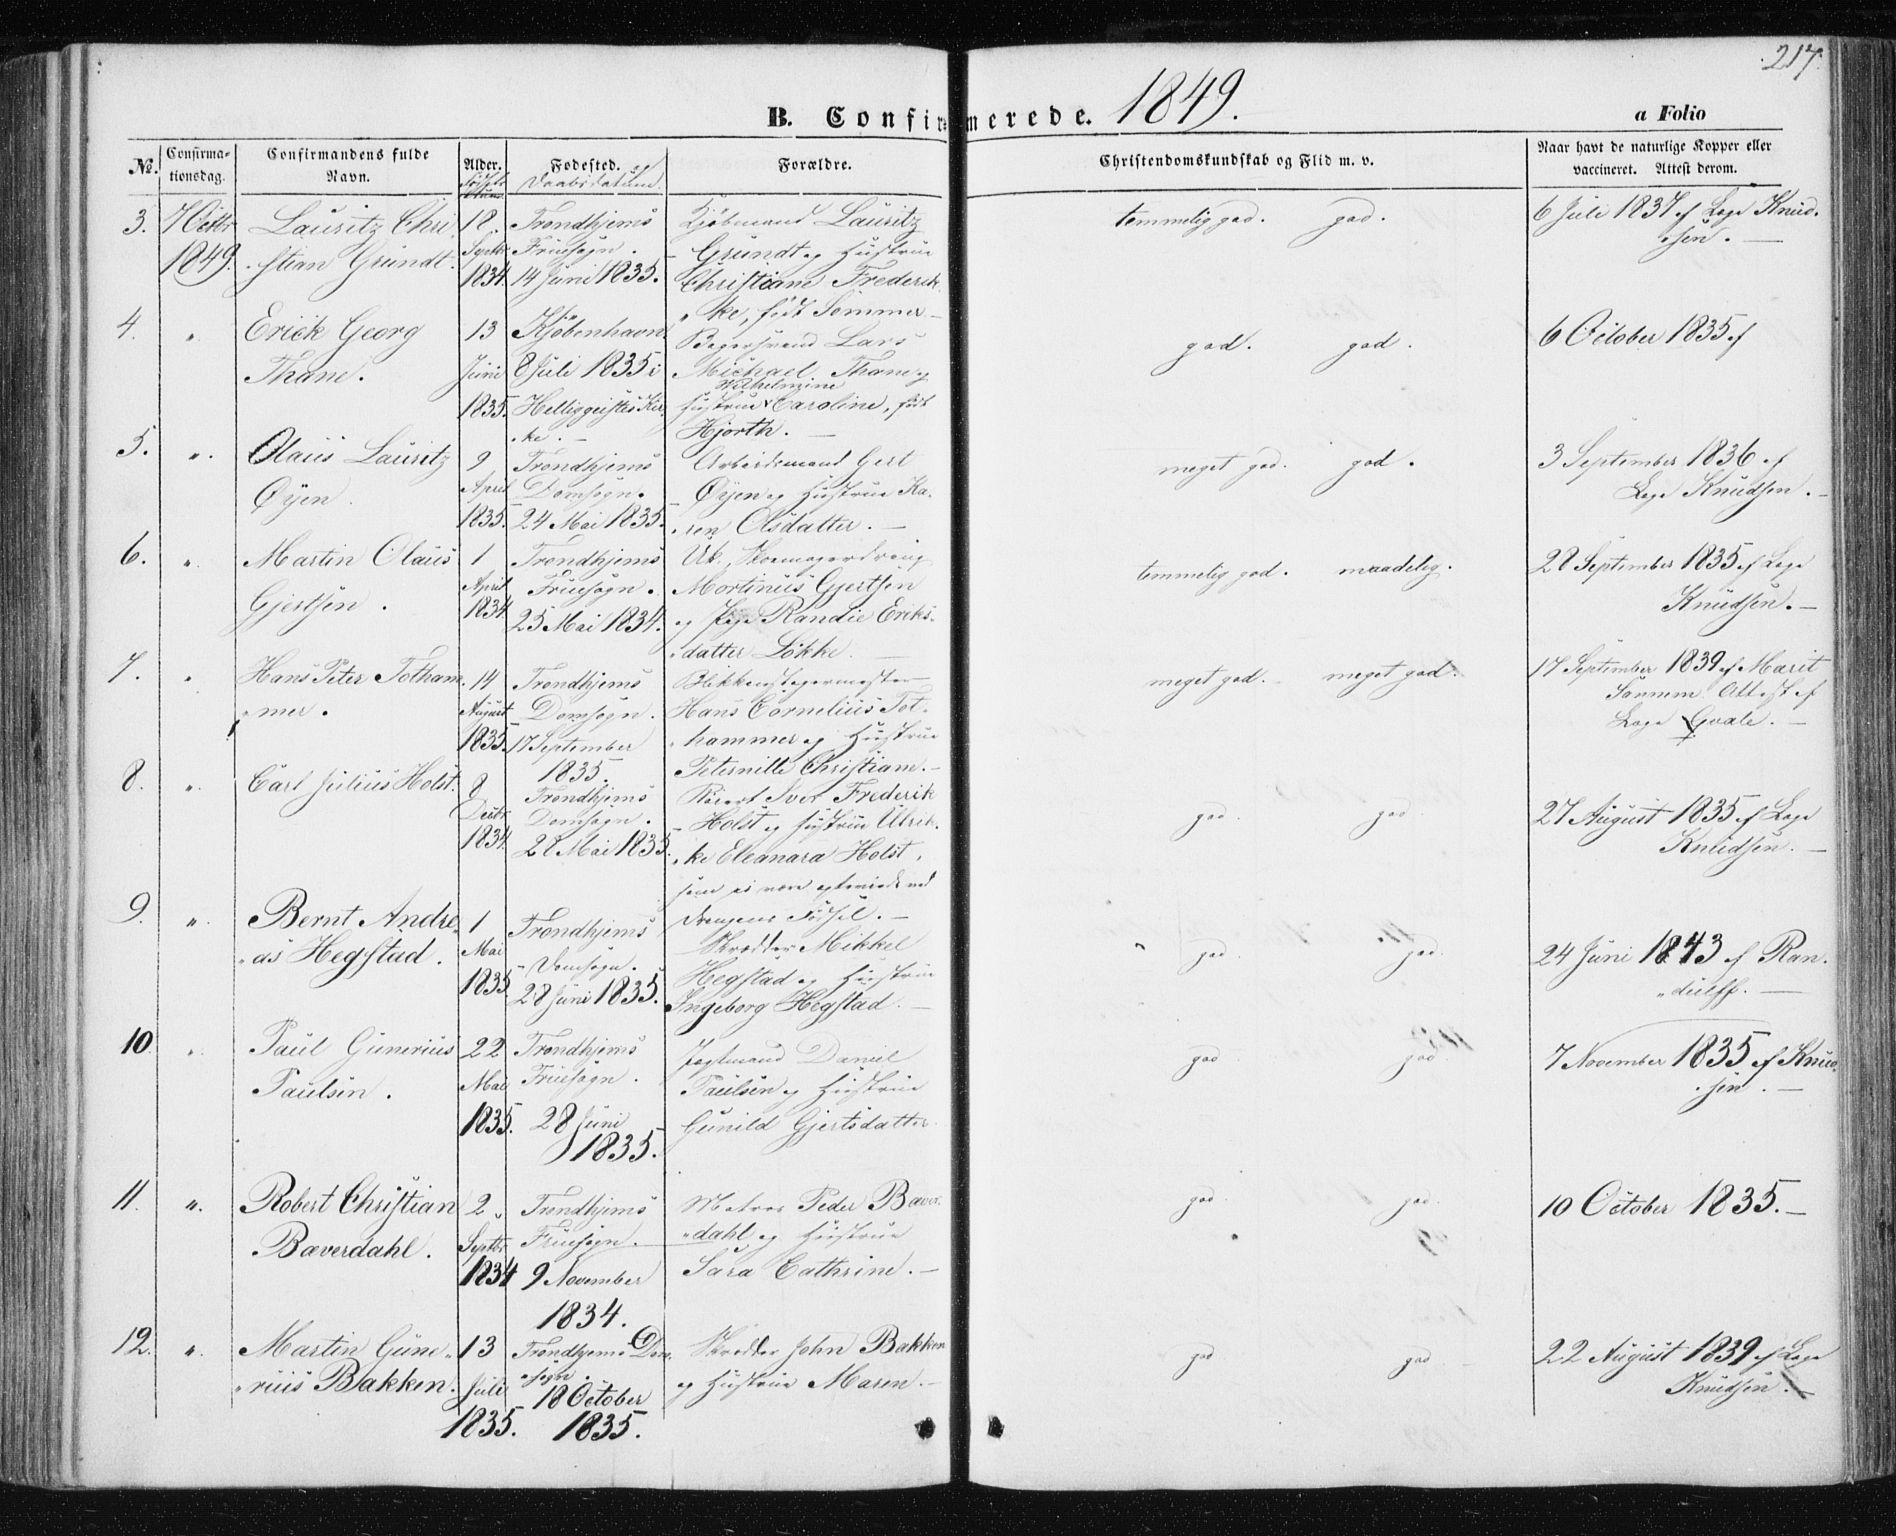 217.
B. Confirmerede. 1849.
a Folio
No.
Confirma-
tionsdag.
Confirmandens fulde
Navn.
Alder.
Fødested. og
Daabsdatum.
Forældre.
Christendomskundskab og Flid m. v.
Naar havt de naturlige Kopper eller
vaccineret. Attest derom.
3. 7 Octbr 1849.
Lauritz Chri
stian Grundt.
18 Septbr 1834.
Trondhjems
Fruesogn.
14 Juni 1835.
Kjøbmand Lauritz
Grundt og Hustrue
Christiane Frederik
ke, født Sommer
temmelig god. god.
6 Juli 1837 af Læge Knud
sen.
4. "
Erick Georg
Thane.
13 Juni 1835.
Kjøbenhavn
8 Juli 1835 i
Helliggeistes Kir
ke.
Bagersvend Lars
Michael Thane og
Hustrue Wilhelmine Caroline, født
Hjorth.
god. god.
6 October 1835 af
5. "
Olaus Lauritz
Øyen
9 April 1835.
Trondhjems
Domsogn.
24 Mai 1835.
Arbeidsmand Gert
Øyen og Hustrue Ka
ren Olsdatter.
meget god. god.
3 September 1836 af
Læge Knudsen.
6. "
Martin Olaus
Gjertsen.
1 April 1834.
Trondhjems
Fruesogn.
25 Mai 1834.
Uk. Skomagerdreng
Mortinus Gjertsen
og Pige Randie Eriks
datter Løkke.
temmelig god. maadelig.
28 September 1835 af Læge
Knudsen.
7. "
Hans Peter Totham
mer.
14 August 1835.
Trondhjems
Domsogn.
17 September
1835.
Blikkenslagermester
Hans Cornelius Tot
hammer og Hustrue
Peternille Christiane.
meget god. meget god.
17 September 1839 af Marit
Sannem Attest af
Læge Qvale.
8. "
Carl Julius Holst.
8 Decbr 1834.
Trondhjems
Domsogn.
28 Mai 1835.
Iver Frederik
Holst og Hustrue Ulrik
ke Eleanara Holst,
som ei vare egteviede ved
Drengens Fødsel.
god. god.
27 August 1835 af Læge
Knudsen.
9. "
Bernt Andre
as Hegstad.
1 Mai 1835
Trondhjems
Domsogn.
28 Juni 1835.
Skrædder Mikkel
Hegstad og Hustrue
Ingeborg Hegstad.
god. god.
24 Juni 1843 af Ran
dulff.
10 "
Paul Gunerius
Paulsen.
22 Mai 1835.
Trondhjems
Fruesogn.
28 Juni
1835.
Daniel
Paulsen og Hustrue
Gunild Gjertsdatter.
god god
7 November 1835 af Knud
sen.
11. "
Robert Christian
Bæverdahl.
2 Septbr 1834
Trondhjems
Fruesogn.
9 November
1834.
Matros Peder Bæver
dahl og Hustrue
Sara Cathrine.
god. god.
10 October 1835.
12. "
Martin Gune
rius Bakken.
13 Juli 1835.
Trondhjems Dom
sogn.
18 October
1835.
Skrædder John Bakken
og Hustrue Maren.
god god
22 August 1839 af Læge
Knudsen.